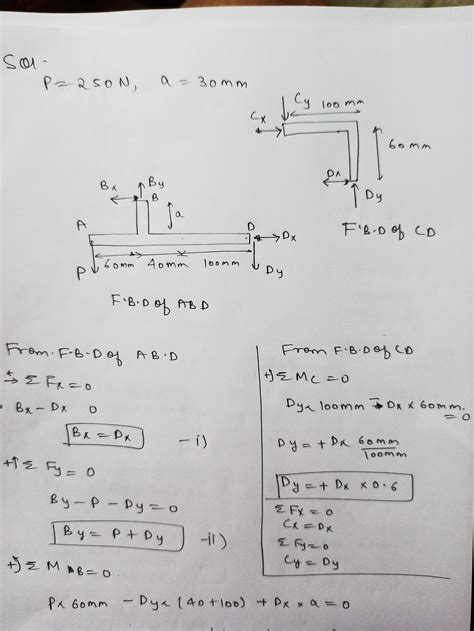 Sol.
P = 250N, a = 30mm
Cy 100mm
Cx
60mm
Dx
Dy
F.B.D of CD
Bx By
B
a
A
D
Dx
60mm 40mm 100mm
P
Dy
F.B.D of ABD
From F.B.D of A B.D
+→ ΣFx = 0
Bx - Dx 0
Bx = Dx - i)
+↑ ΣFy = 0
By - P - Dy = 0
By = P + Dy -ii)
+) Σ M B = 0
P x 60mm - Dy x (40 + 100) + Dx x a = 0
From F.B.D of CD
+) Σ Mc = 0
Dy x 100mm - Dx x 60mm = 0
Dy = + Dx 60mm
100mm
Dy = + Dx x 0.6
ΣFx = 0
Cx = Dx
ΣFy = 0
Cy = Dy